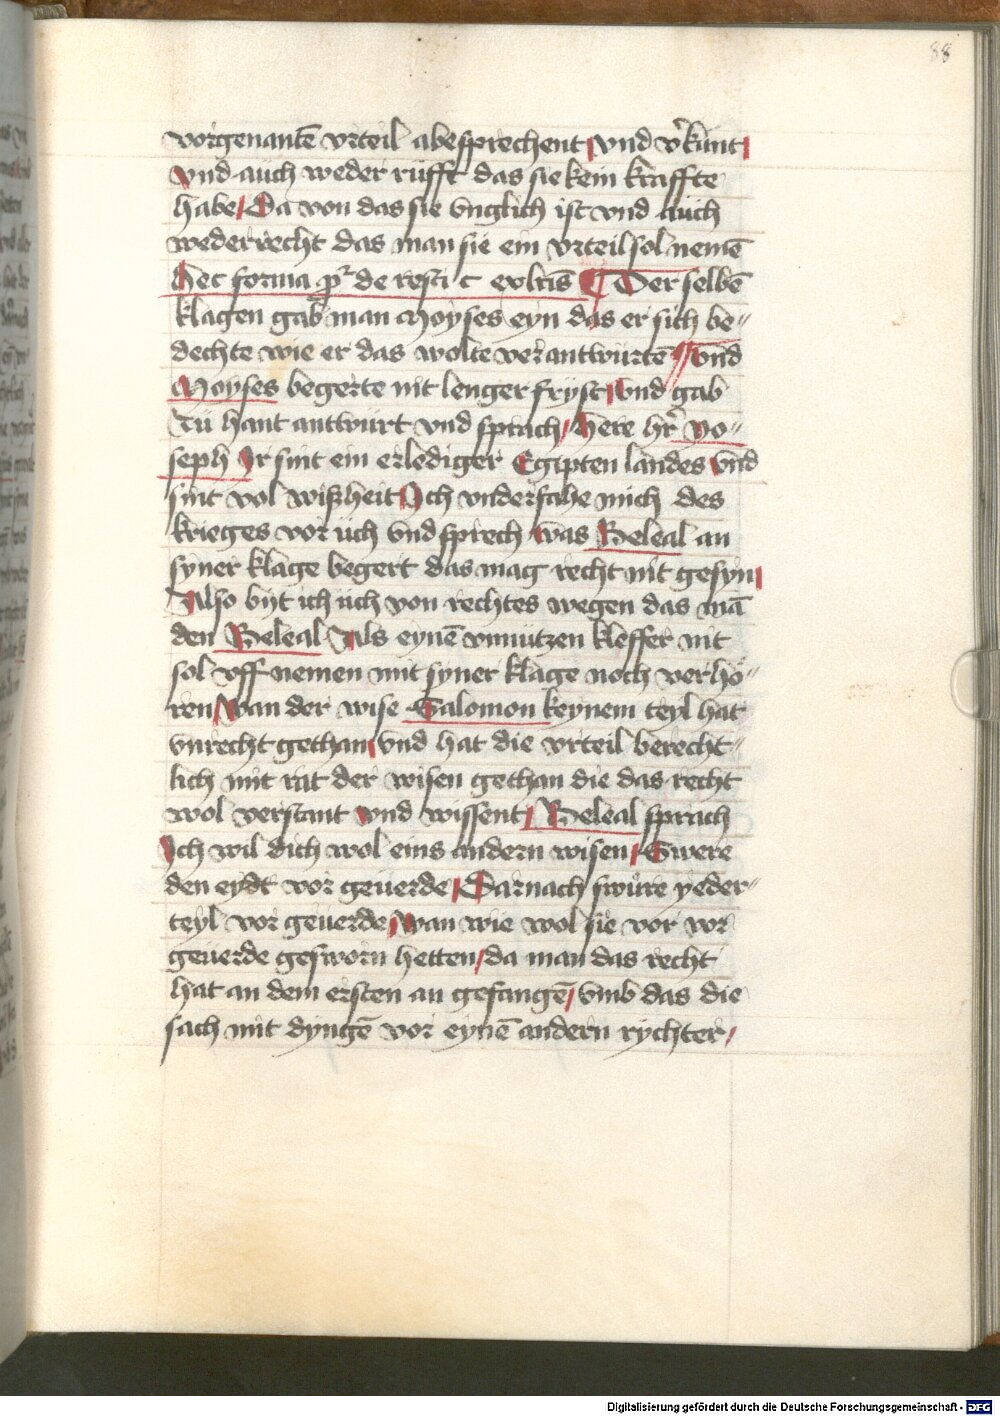 88
vorgenantē vrteil abesprechent vnd v'kunt
vnd auch weder rüfft das sie kein kraffte
habe Da von das sie vnglich ist vnd auch
wederrecht das man sie ein vrteil sol nemē
Hec forma de resti c Der selbē
klagen gab man Moyses eyn das er sich be〃
dechte wie er das wolte verantwürtē vnd
Moyses begerte nit lenger fryst vnd gab
Zü hant antwürt vnd sprach Here hr̄ Yo〃
seph Ir sint ein erlediger Egipten landes vnd
sint vol wißheit Ich vnderfahe mich des
krieges vor üch vnd sprech was Beleal an
syner klage begert das mag recht nit gesyn
Also byt ich üch von rechtes wegen das mā
den Beleal Als eynē vnnützen kleffer nit
sol vff nemen mit syner klage noch verhö〃
ren wan der wise Salomon keynem teyl hat
vnrecht gethan vnd hat die vrteil berecht〃
lich mit rat der wisen gethan die das recht
wol verstant vnd wissent Beleal sprach
Ich wil dich wol eins andern wisen Swere
den eydt vor geuerde Darnach swüre yeder〃
teyl vor geuerde wan wie wol sie vor vor
geuerde gesworn hetten da man das recht
hat an dem ersten an gefangē vmb das die
sach mit dyngē vor eynē andern rychter
Digitalisierung gefördert durch die Deutsche Forschungsgemeinschaft - DFG